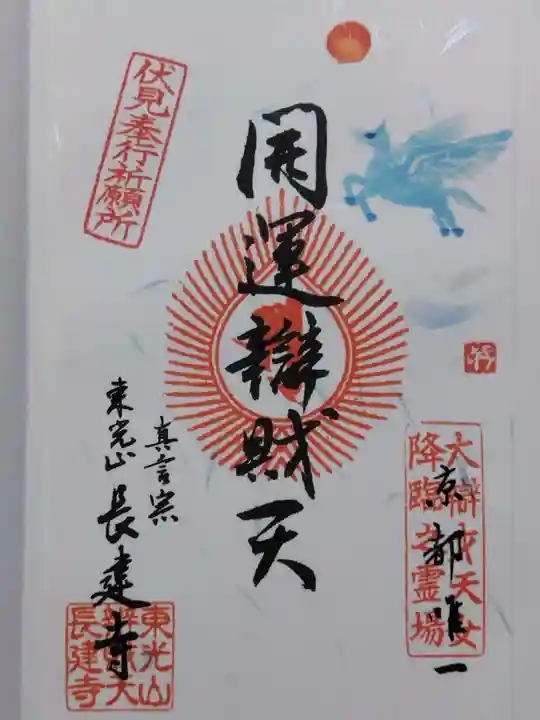 伏見奉行祈願所
開運辯財天
京都唯一
大辯才天女
降臨之霊場
真言宗
東光山 長建寺
東光山
辨財天
長建寺